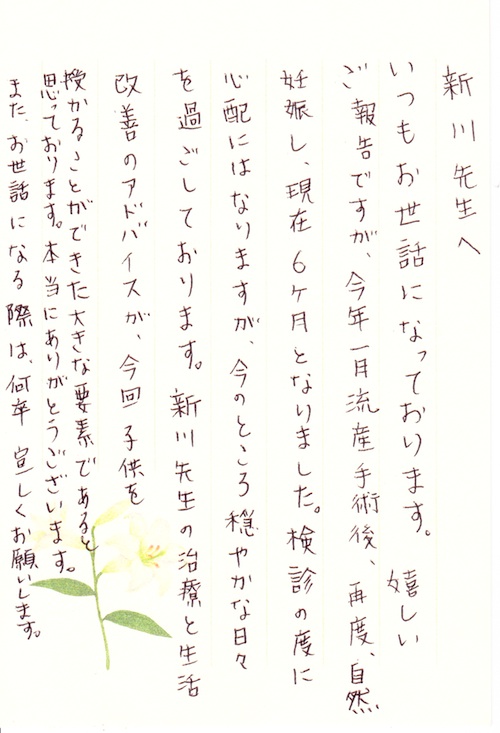 新川先生へ
いつもお世話になっております。 嬉しい
ご報告ですが、今年一月流産手術後、再度、自然
妊娠し、現在6ヶ月となりました。検診の度に
心配にはなりますが、今のところ穏やかな日々
を過ごしております。新川先生の治療と生活
改善のアドバイスが、今回子供を
授かることができた大きな要素であると
思っております。本当にありがとうございます。
また、お世話になる際は、何卒宜しくお願いします。